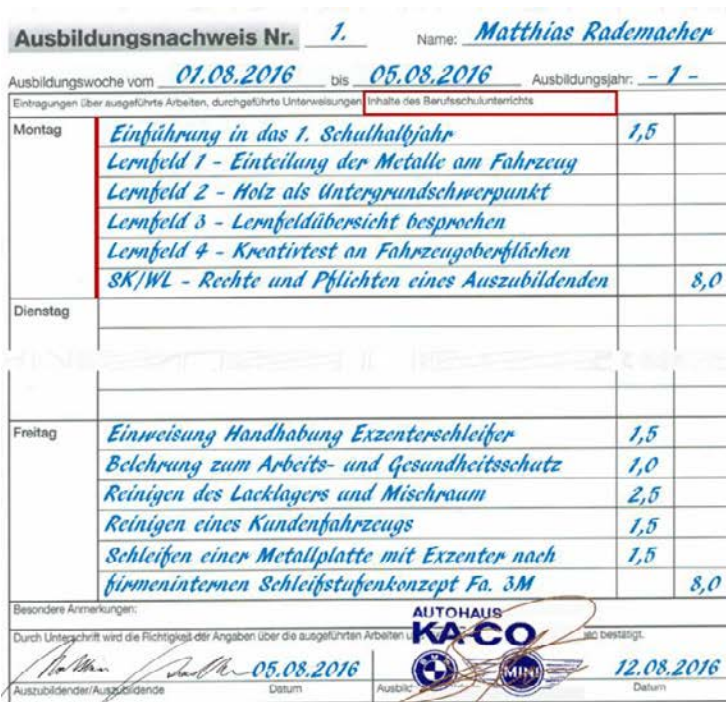 Ausbildungsnachweis Nr. 1. Name: Matthias Rademacher
Ausbildungswoche vom 01.08.2016 bis 05.08.2016 Ausbildungsjahr: - 1 -
Eintragungen über ausgeführte Arbeiten, durchgeführte Unterweisungen, Inhalte des Berufsschulunterrichts
Montag Einführung in das 1. Schulhalbjahr 1,5
Lernfeld 1 - Einteilung der Metalle am Fahrzeug
Lernfeld 2 - Holz als Untergrundschwerpunkt
Lernfeld 3 - Lernfeldübersicht besprochen
Lernfeld 4 - Kreativtest an Fahrzeugoberflächen
SK/WL - Rechte und Pflichten eines Auszubildenden 8,0
Dienstag
Freitag Einweisung Handhabung Exzenterschleifer 1,5
Belehrung zum Arbeits- und Gesundheitsschutz 1,0
Reinigen des Lacklagers und Mischraum 2,5
Reinigen eines Kundenfahrzeugs 1,5
Schleifen einer Metallplatte mit Exzenter nach 1,5
firmeninternen Schleifstufenkonzept Fa. 3M 8,0
Besondere Anmerkungen:
AUTOHAUS
Durch Unterschrift wird die Richtigkeit der Angaben über die ausgeführten Arbeiten bestätigt.
KA CO
BMW MINI
05.08.2016 12.08.2016
Auszubildender/Auszubildende Datum Ausbild Datum